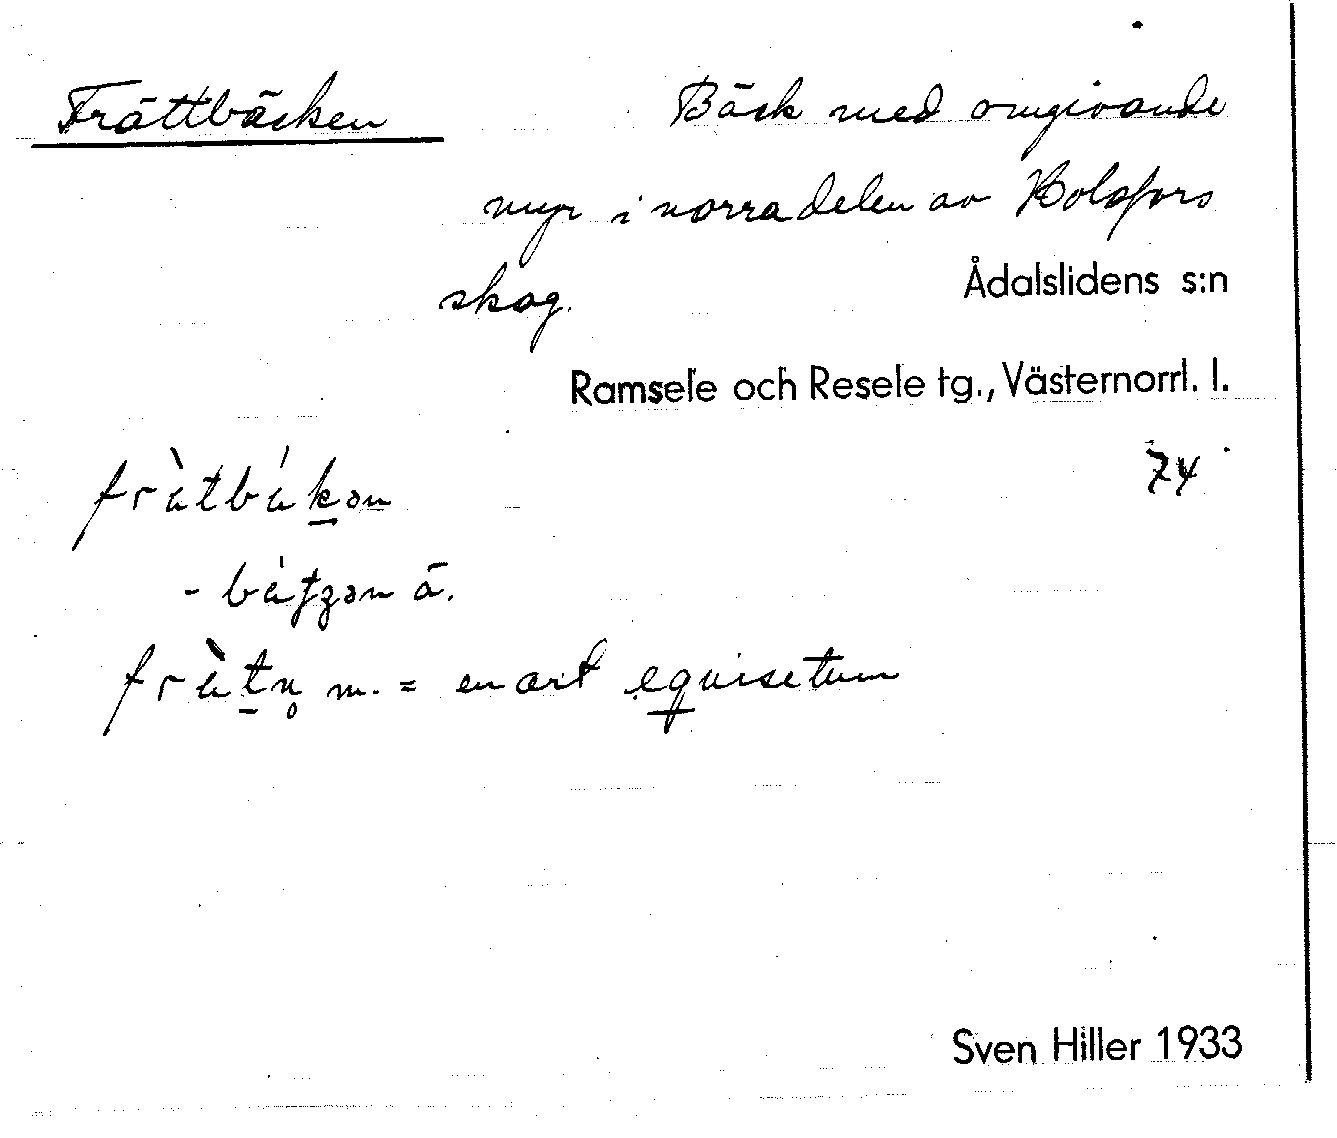 Frättbäcken Bäck med omgivande
myr i norra delen av Holafors
skog. Ådalslidens s:n
Ramsele och Resele tg., Västernorrl. l.
74
frätbäkən
- bätʒən ä.
frätn̥ m. = en art equisetum
Sven Hiller 1933